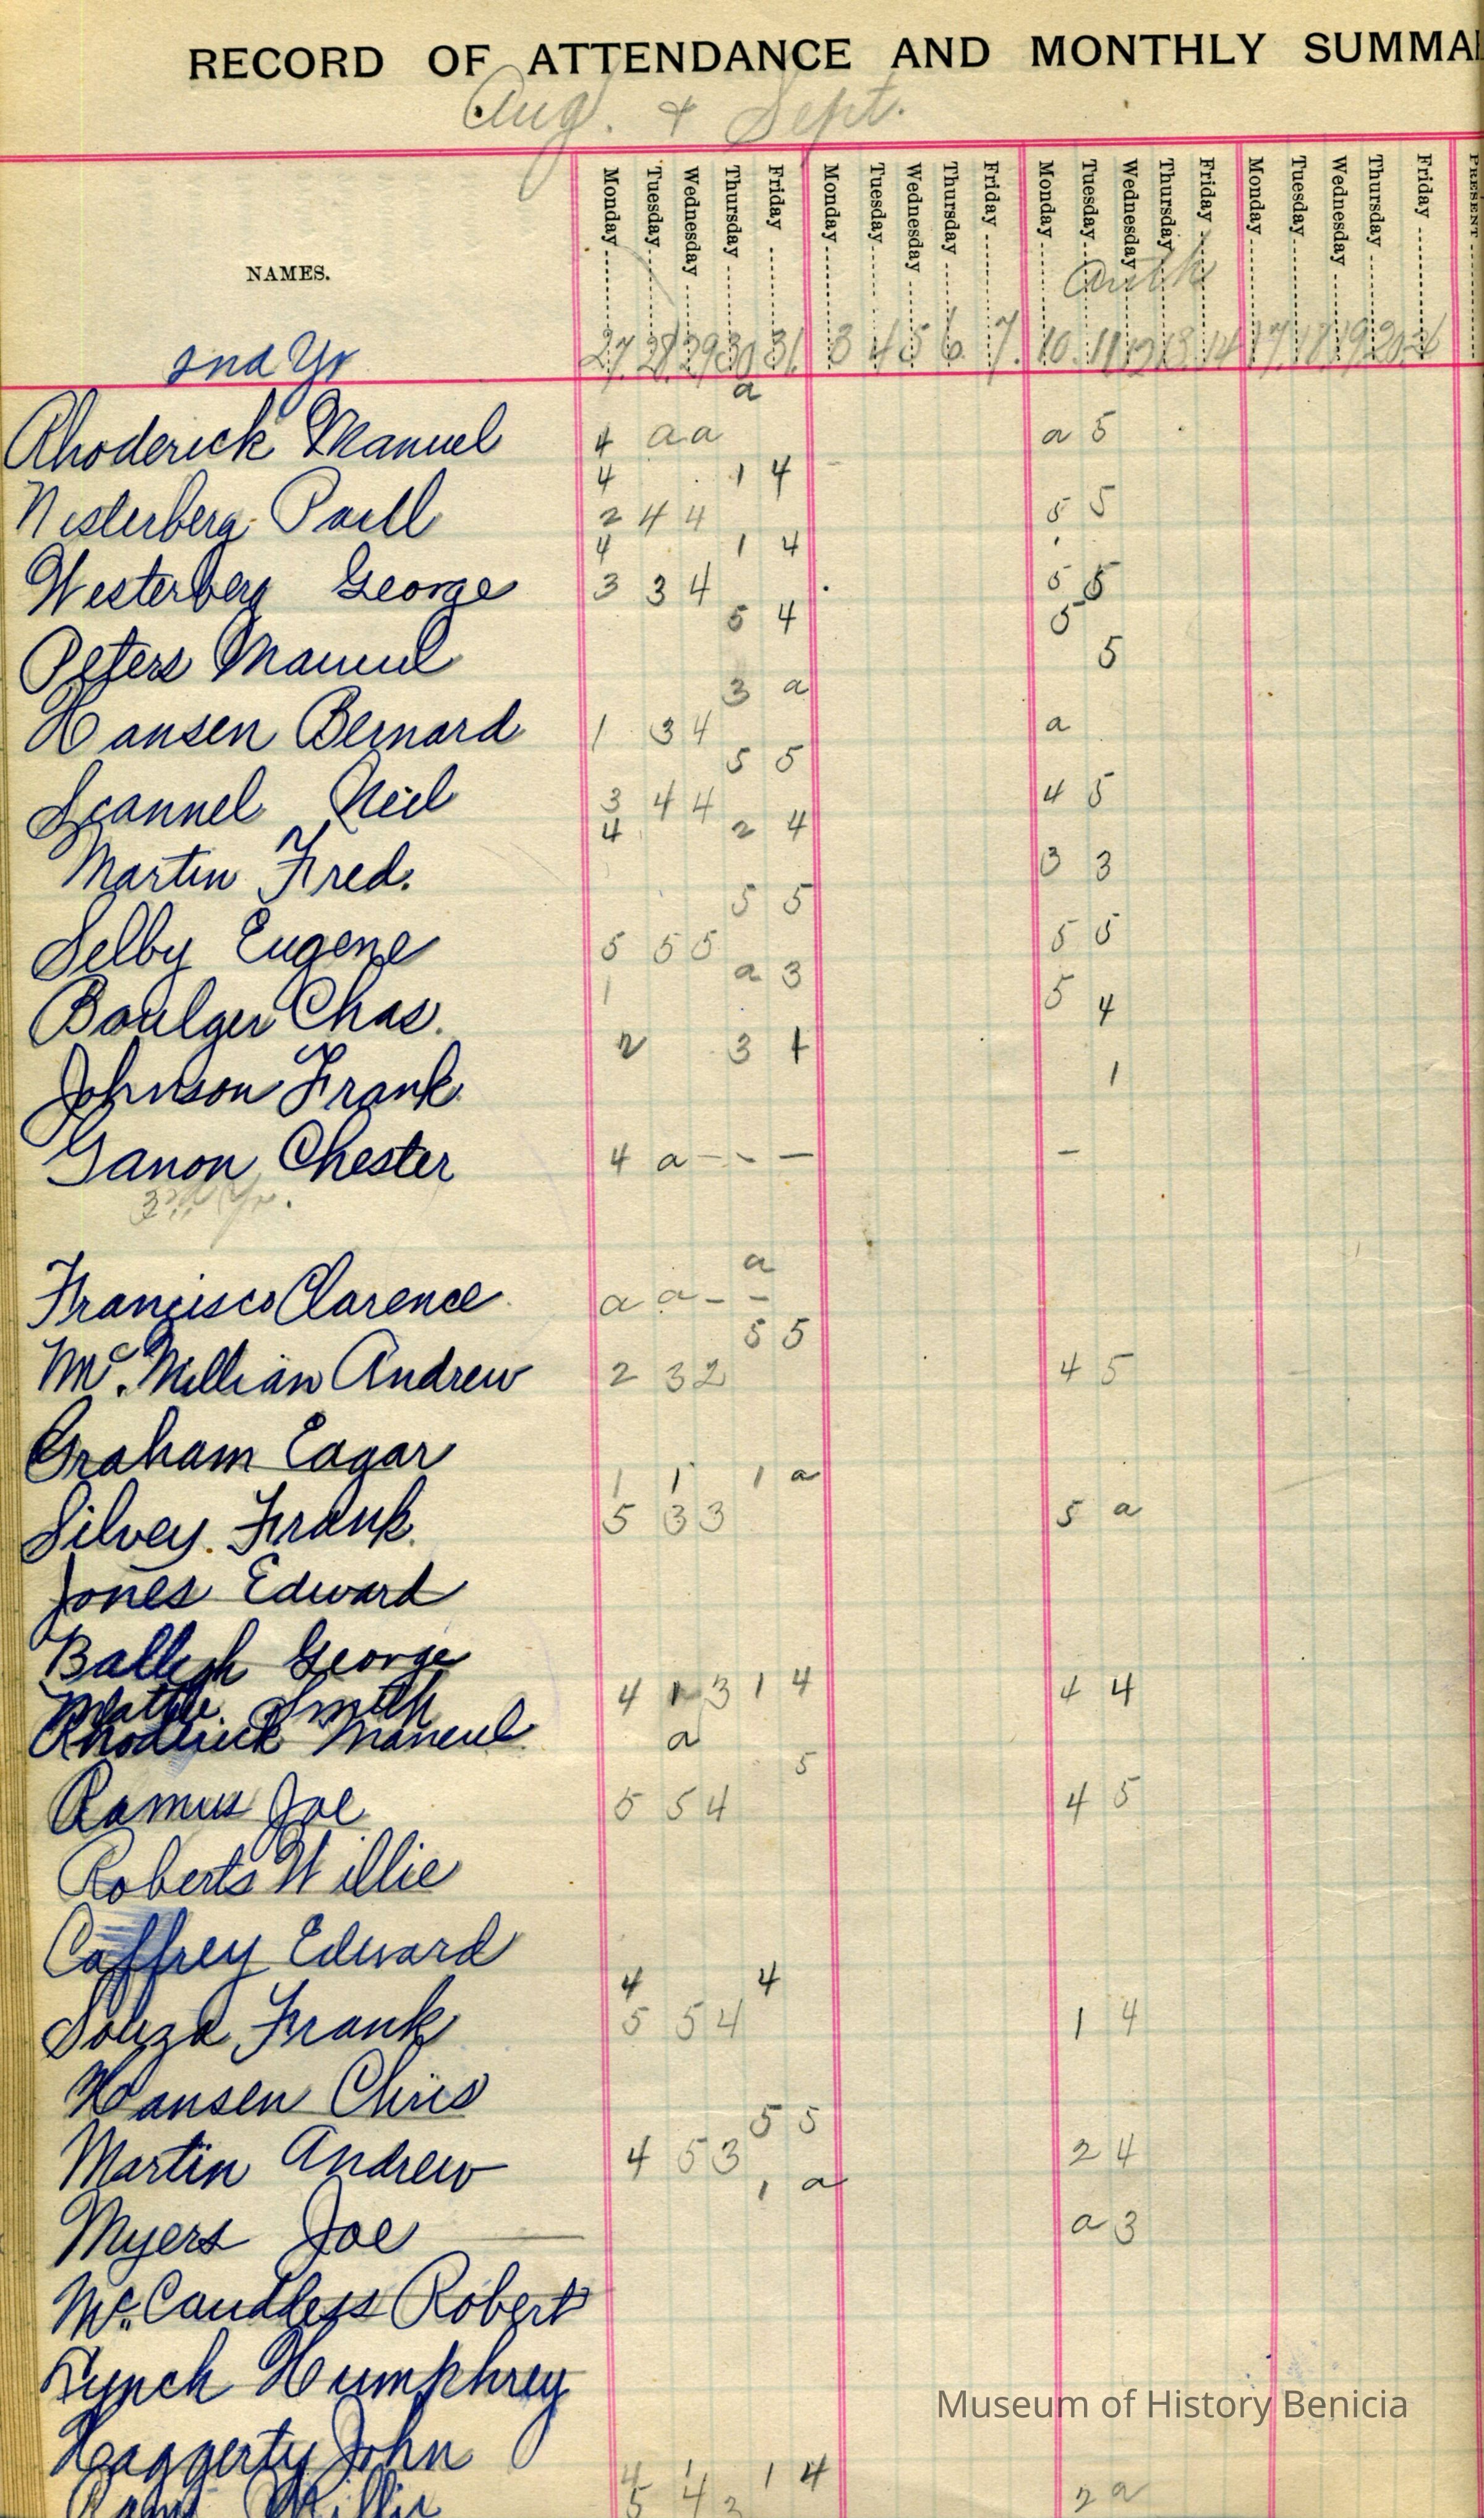 RECORD OF ATTENDANCE AND MONTHLY SUMMA
Aug. & Sept.
NAMES.
Monday Tuesday Wednesday Thursday Friday Monday Tuesday Wednesday Thursday Friday Monday Tuesday Wednesday Thursday Friday Monday Tuesday Wednesday Thursday Friday PRESENT
Arith
2nd Yr 27. 28. 29 30 31. 3 4 5 6. 7. 10. 11 12 13. 14 17. 18. 19. 20. 21
a
Rhoderick Manuel 4 a a a 5
4 1 4
Nesterberg Paul 2 4 4 5 5
4 1 4
Westerberg George 3 3 4 5 5
5 4 5
Peters Manuel 5
3 a
Hansen Bernard 1 3 4 a
5 5
Scannel Neil 3 4 4 4 5
4 2 4
Martin Fred. 3 3
5 5
Selby Eugene 5 5 5 5 5
a 3
Boulger Chas. 1 5 4
2 3 1
Johnson Frank 1
Ganon Chester 4 a - - - -
3rd Yr.
a
Francisco Clarence a a - -
5 5
Mc. Millian Andrew 2 3 2 4 5
Graham Eagar
1 1 1 a
Silvey. Frank. 5 3 3 5 a
Jones Edward
Balligh George
Mattie Smith 4 1 3 1 4 4 4
Rhoderick Manuel a
5
Ramus Joe 5 5 4 4 5
Roberts Willie
Caffrey Edward
4 4
Souza Frank 5 5 4 1 4
Hansen Chris
5 5
Martin Andrew 4 5 3 2 4
1 a
Myers Joe a 3
Mc. Candless Robert
Lynch Humphrey
Haggerty John
4 1 1 4
Willie 5 4 3 2 a
Museum of History Benicia